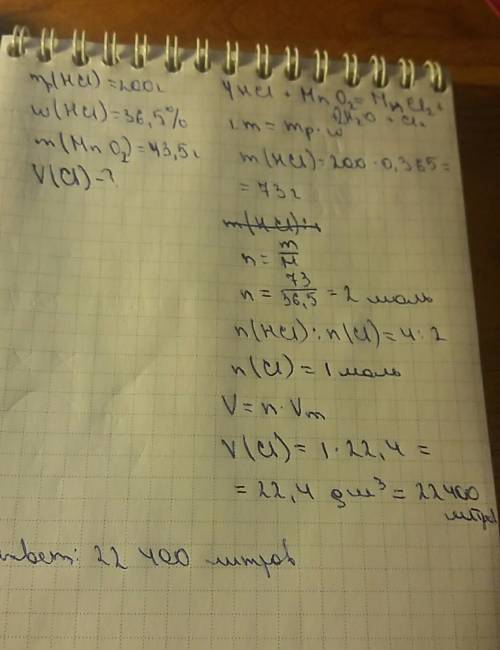 mр(HCl)=200г
w(HCl)=36,5%
m(MnO₂)=43,5г
V(Cl)-?
4HCl + MnO₂= MnCl₂+
2H₂O + Cl₂
1. m= mр·w
m(HCl)=200·0,365=
=73г
m(HCl):
n= m/M
n= 73/36,5 =2 моль
n(HCl):n(Cl)=4:2
n(Cl)=1 моль
V=n·Vm
V(Cl)=1·22,4=
=22,4 дм³=22400
литров
ответ: 22 400 литров